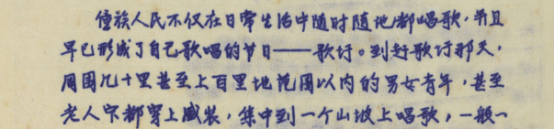 僮族人民不仅在日常生活中随时随地都唱歌，并且
早已形成了自己歌唱的节日——歌圩。到赶歌圩那天，
周围几十里甚至上百里地范围以内的男女青年，甚至
老人家都穿上盛装，集中到一个山坡上唱歌，一般一